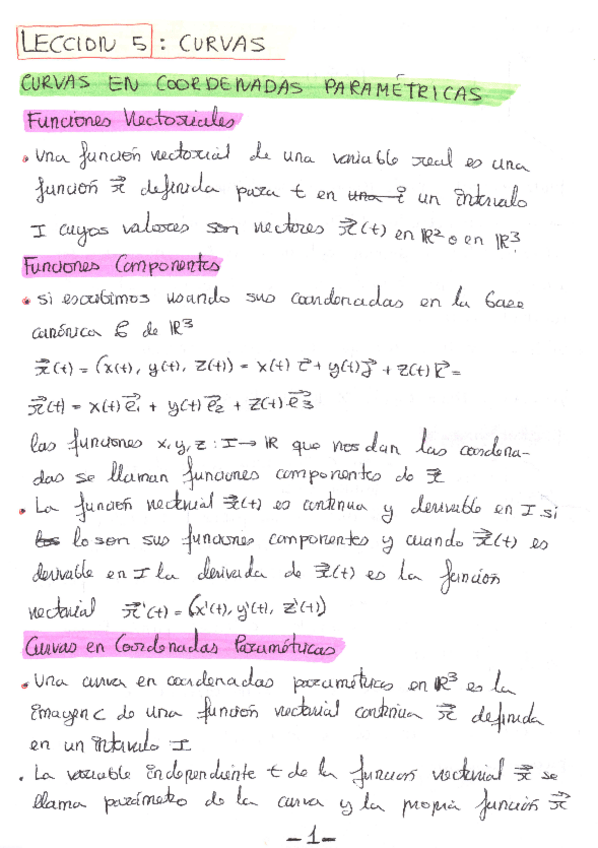 LECCION 5 : CURVAS
CURVAS EN COORDENADAS PARAMÉTRICAS
Funciones Vectoriales
• Una función vectorial de una variable real es una
función r⃗ definida para t en un intervalo
I cuyos valores son vectores r⃗(t) en ℝ² o en ℝ³.
Funciones Componentes
• si escribimos usando sus coordenadas en la base
canónica C de ℝ³
r⃗(t) = (x(t), y(t), z(t)) = x(t) i⃗ + y(t) j⃗ + z(t) k⃗ =
r⃗(t) = x(t) e⃗₁ + y(t) e⃗₂ + z(t) e⃗₃
las funciones x, y, z : I → ℝ que nos dan las coordena-
das se llaman funciones componentes de r⃗
• La función vectorial r⃗(t) es continua y derivable en I si
lo son sus funciones componentes y cuando r⃗(t) es
derivable en I la derivada de r⃗(t) es la función
vectorial r⃗'(t) = (x'(t), y'(t), z'(t))
Curvas en Coordenadas Paramétricas
• Una curva en coordenadas paramétricas en ℝ³ es la
imagen C de una función vectorial continua r⃗ definida
en un intervalo I
• La variable independiente t de la función vectorial r⃗ se
llama parámetro de la curva y la propia función r⃗
-1-